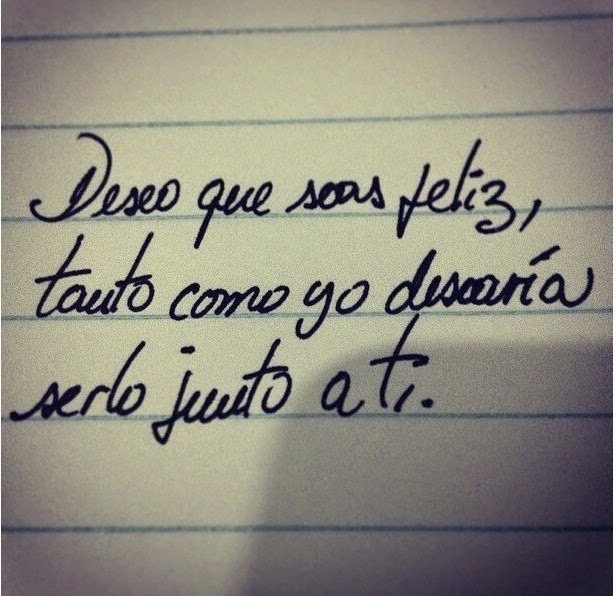 Deseo que seas feliz,
tanto como yo desearía
serlo junto a ti.